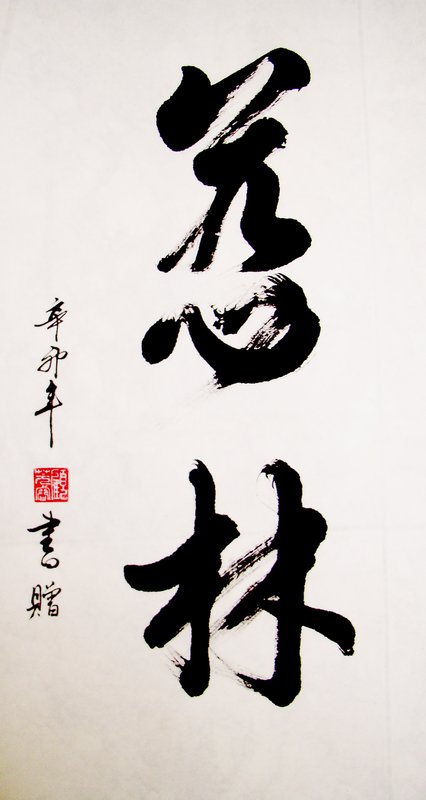 慈林
辛卯年
書贈